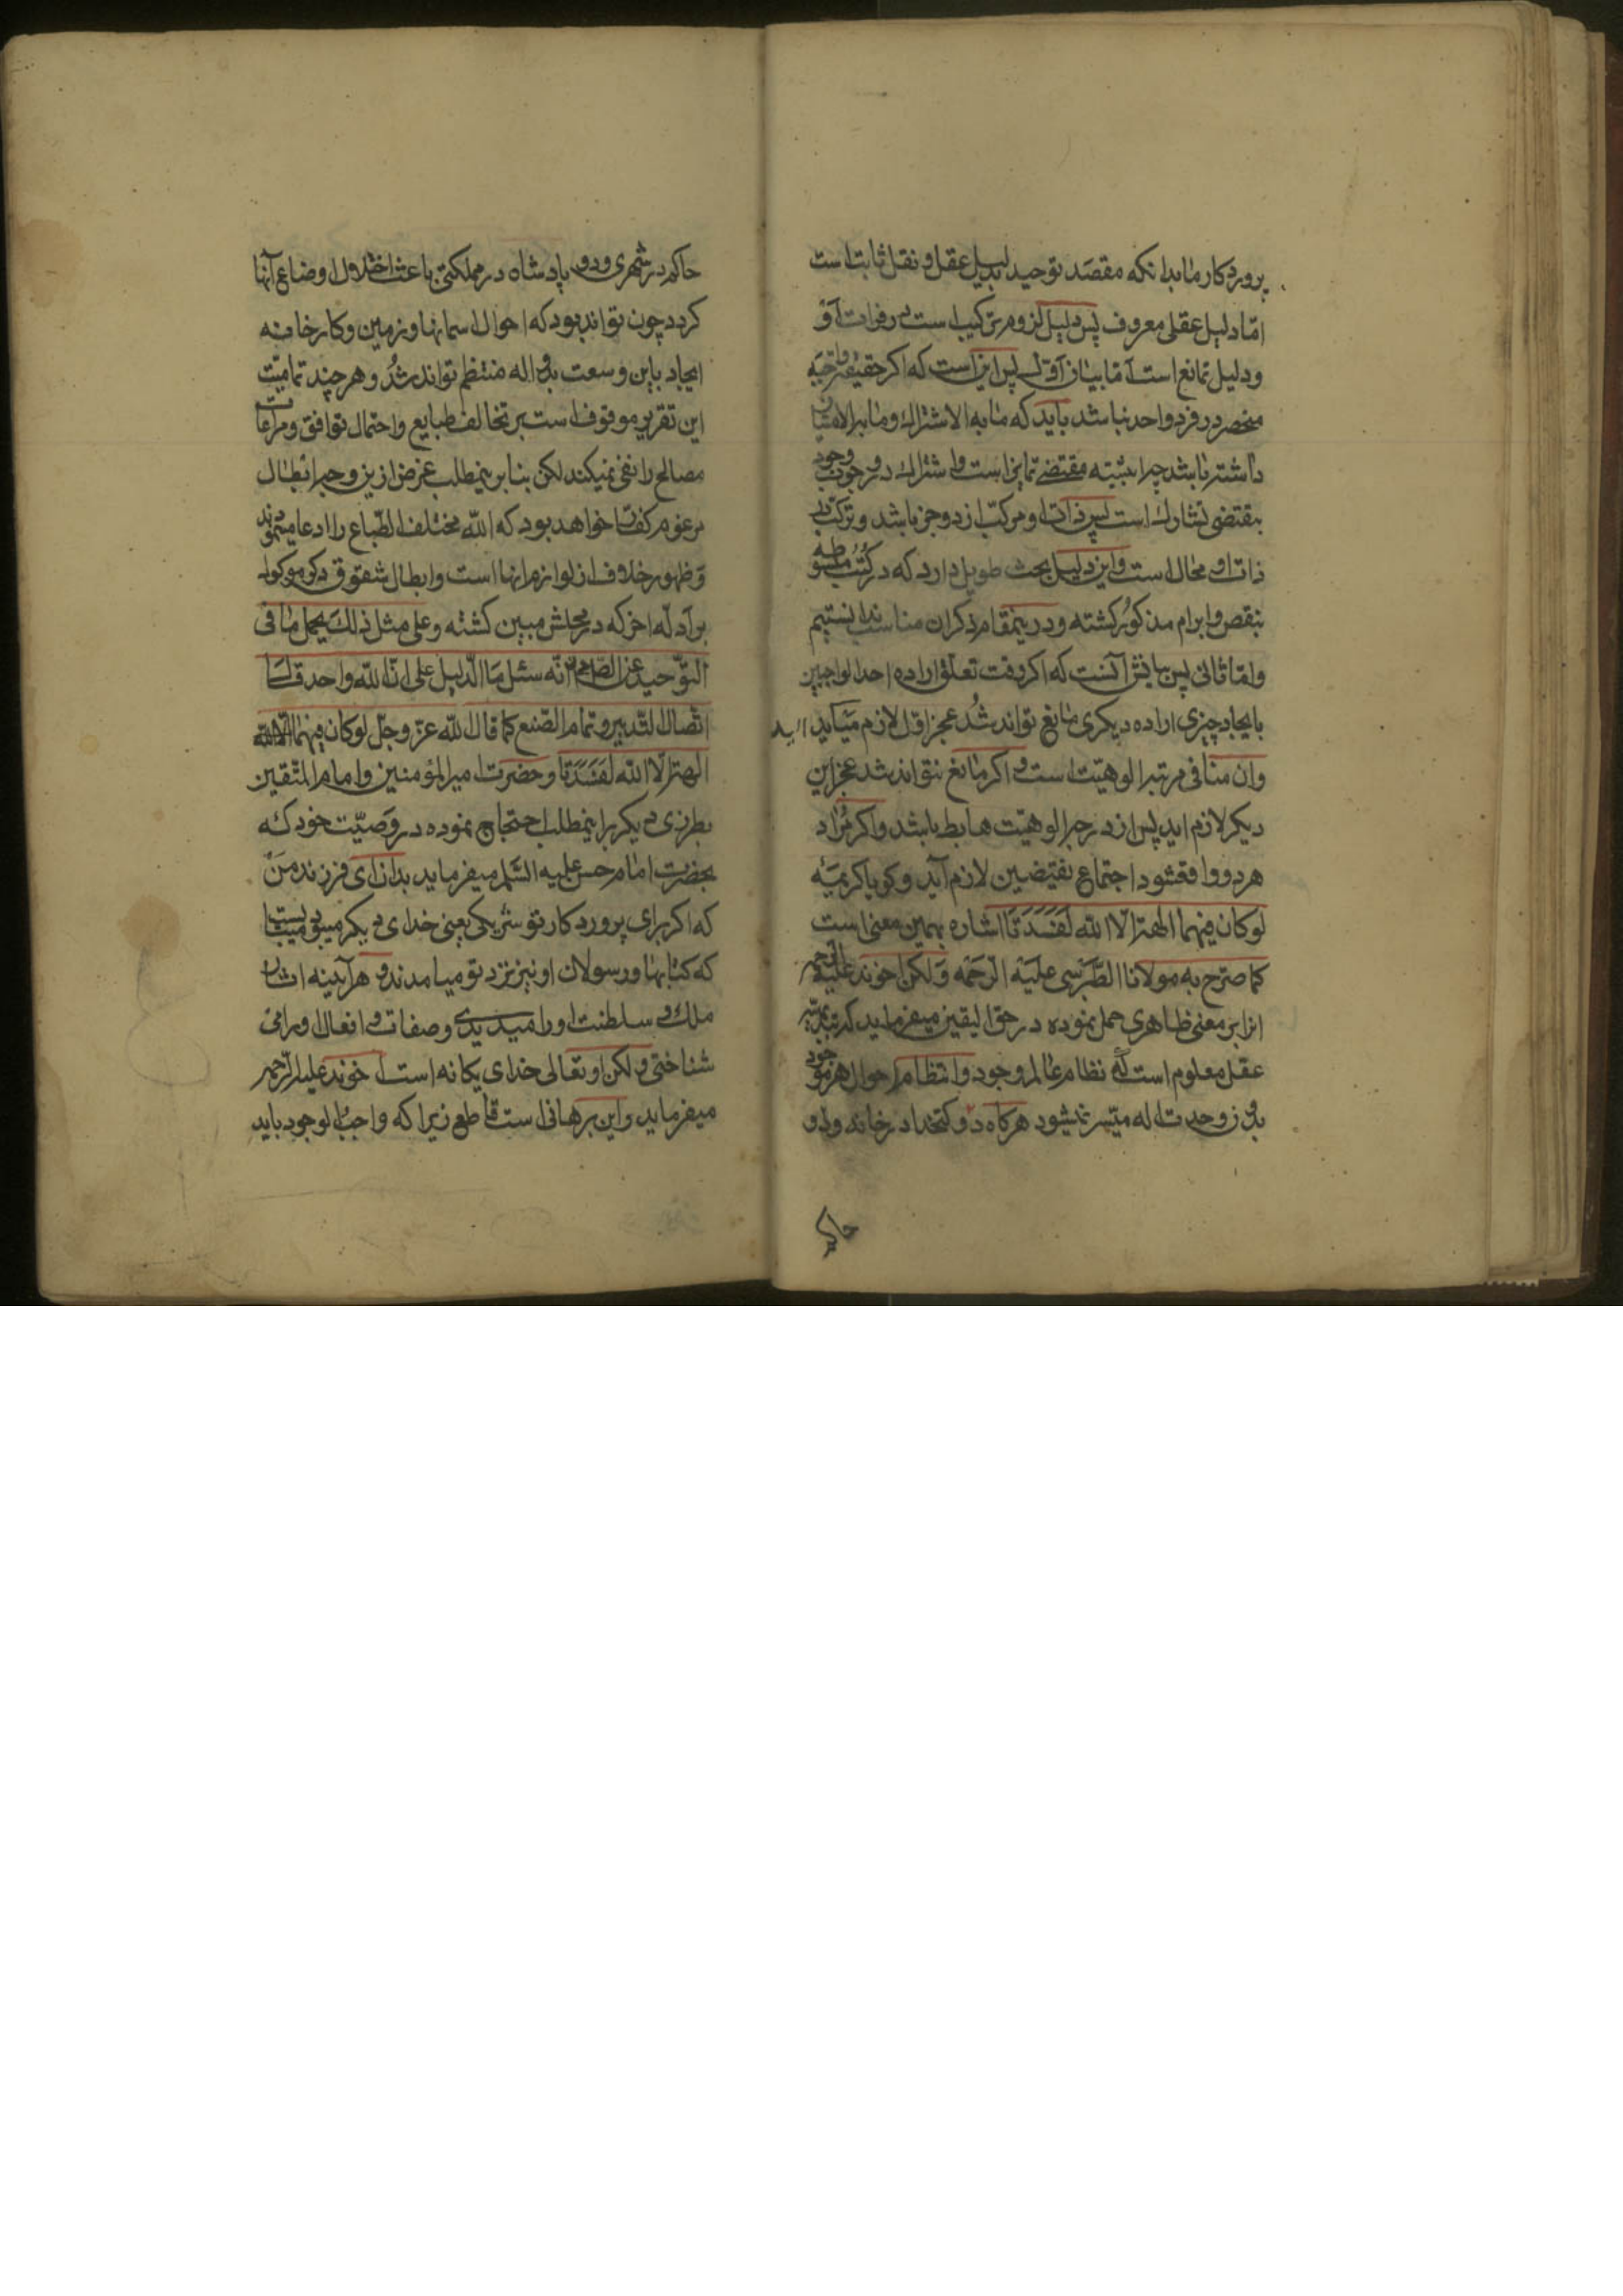 پروردکار ما بدانکه مقصد توحید بدلیل عقل و نقل ثابت است
امّا دلیل عقلی معروف پس دلیل لزوم ترکیب است در ذات او
و دلیل تمانع است امّا بیان اوّل پس این است که اکر حقیقة واجبه
منحصر در فرد واحد نباشد باید که ما به الاشتراک و ما به الامتیاز
داشته باشد چرا مقتضی تمایز است و اشتراک در وجوب وجود
مقتضی تشارک است پس ذات او مرکّب از دو جز باشد و ترکب
ذات او محال است و این دلیل بحث طویل دارد که در کتُب مبسوطه
بنقض و ابرام مذکور کشته و درینمقام ذکر ان مناسب ندانستیم
و امّا ثانی پس بیانش آنست که اکر وقت تعلّق اراده احد الواجبین
بایجاد چیزی اراده دیکری مانع تواند شُد عجز اوّل لازم میآید
و ان منافی مرتبه الوهیّت است و اکر مانع نتواند شد عجز این
دیکر لازم اید پس از درجه الوهیّت هابط باشد و اکر مُراد
هر دو واقع شود اجتماع نقیضین لازم آید و کویا کریمَه
لو کان فیهما الهة الّا الله لَفَسَدَتَا اشاره بهمین معنی است
کما صرّح به مولانا الطَّبَرسی علَیه الرّحمَه وَلکن اخوند علیه الرحمه
انرا بر معنی ظاهری حمل نموده در حقّ الیقین میفرماید که
عقل معلوم است که نظام عالم وجود و انتظام احوال هر موجود
بدون وحدت اله میّسر نمیشود هرکاه دو کتخدا در خانه و دو
حاکم
حاکم در شهری و دو پادشاه در مملکتی باعث اختلال اوضاع آنها
کردد چون تواند بود که احوال اسمانها و زمین و کارخانه
ایجاد باین وسعت بدو اله منتظم تواند شُد و هر چند تمامیّت
این تقریر موقوف است بر تخالف طبایع و احتمال توافق و مراعات
مصالح را نفی نمیکند لکن بنابر ینمطلب غرض ازین وجه ابطال
مزعوم کفّار خواهد بود که الله مختلف الطّباع را ادعا مینمودند
وَ ظهور خلاف از لوازم انها است و ابطال شقوق دیکر موکول
بر ادلّه اخر که در محلش مبیین کشته و علی مثل ذلکَ یحمل ما فی
التّوحید عن الصّادق انّه سئل مَا الدّلیل علی انّ الله واحد قال
اتّصال التّدبیر و تمام الصّنع کما قال الله عزّ و جلّ لو کان فیهما
الهة الّا الله لَفَسَدَتَا و حضرت امیر المؤمنین و امام المتّقین
بطرزی دیکر براینمطلب احتجاج نموده در وَصیّت خود که
بحضرت امام حسن علیه السّلم میفرماید بدان ای فرزند مَن
که اکر برای پرورد کار تو شریکی یعنی خدای دیکر میبود میبایست
که کتابها و رسولان او نیز نزد تو میامدند و هر آیینه اثار
ملک و سلطنت او را میدیدی و صفات و افعال او را می
شناختی و لکن او تعالی خدای یکانه است اخوند علیه الرّحمه
میفرماید و این برهانی است قاطع زیرا که واجب الوجود باید